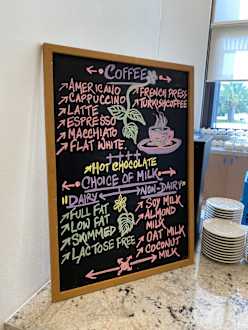 COFFEE
AMERICANO
CAPPUCCINO
LATTE
ESPRESSO
MACCHIATO
FLAT WHITE
FRENCH PRESS
TURKISH COFFEE
HOT CHOCOLATE
CHOICE OF MILK
"DAIRY
NON-DAIRY"
FULL FAT
LOW FAT
SKIMMED
LACTOSE FREE
SOY MILK
ALMOND
MILK
OAT MILK
COCONUT
MILK